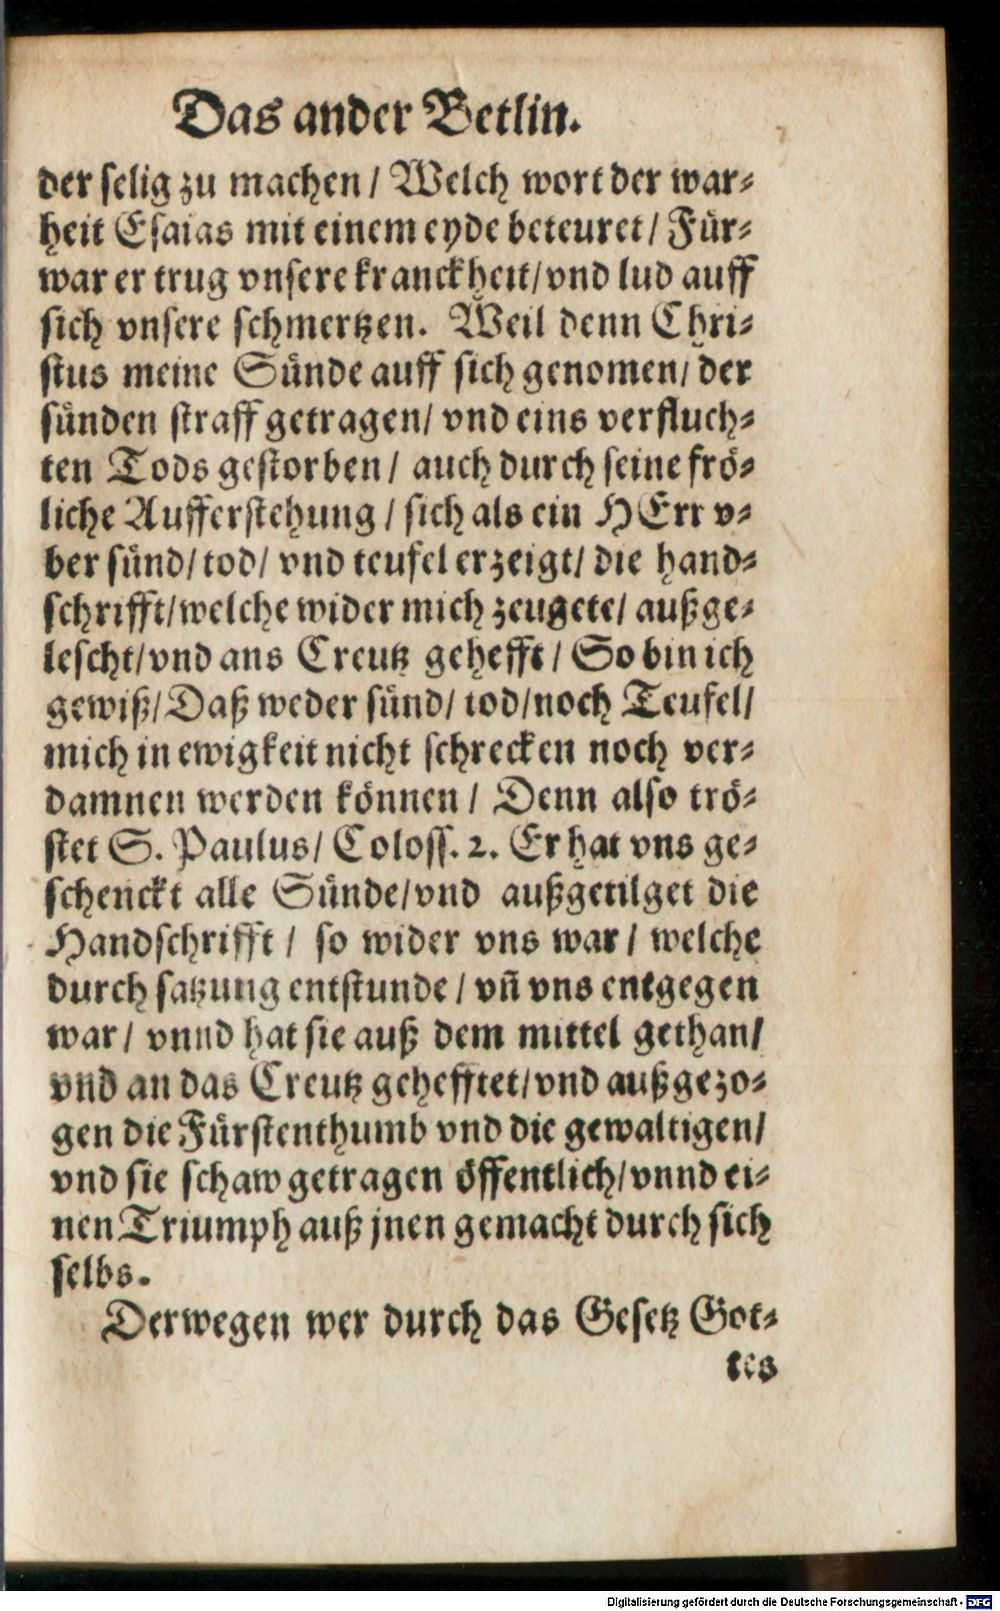 Das ander Betlin.
der selig zu machen / Welch wort der war⸗
heit Esaias mit einem eyde beteuret / Für⸗
war er trug vnsere kranckheit / vnd lud auff
sich vnsere schmertzen. Weil denn Chri⸗
stus meine Sünde auff sich genomen / der
sünden straff getragen / vnd eins verfluch⸗
ten Tods gestorben / auch durch seine frö⸗
liche Aufferstehung / sich als ein HErr v⸗
ber sünd / tod / vnd teufel erzeigt / die hand⸗
schrifft / welche wider mich zeugete / außge⸗
lescht / vnd ans Creutz gehefft / So bin ich
gewiß / Daß weder sünd / tod / noch Teufel /
mich in ewigkeit nicht schrecken noch ver⸗
damnen werden können / Denn also trö⸗
stet S. Paulus / Coloss. 2. Er hat vns ge⸗
schenckt alle Sünde / vnd außgetilget die
Handschrifft / so wider vns war / welche
durch satzung entstunde / vñ vns entgegen
war / vnnd hat sie auß dem mittel gethan /
vnd an das Creutz gehefftet / vnd außgezo⸗
gen die Fürstenthumb vnd die gewaltigen /
vnd sie schaw getragen öffentlich / vnnd ei⸗
nen Triumph auß jnen gemacht durch sich
selbs.
Derwegen wer durch das Gesetz Got⸗
tes
Digitalisierung gefördert durch die Deutsche Forschungsgemeinschaft - DFG